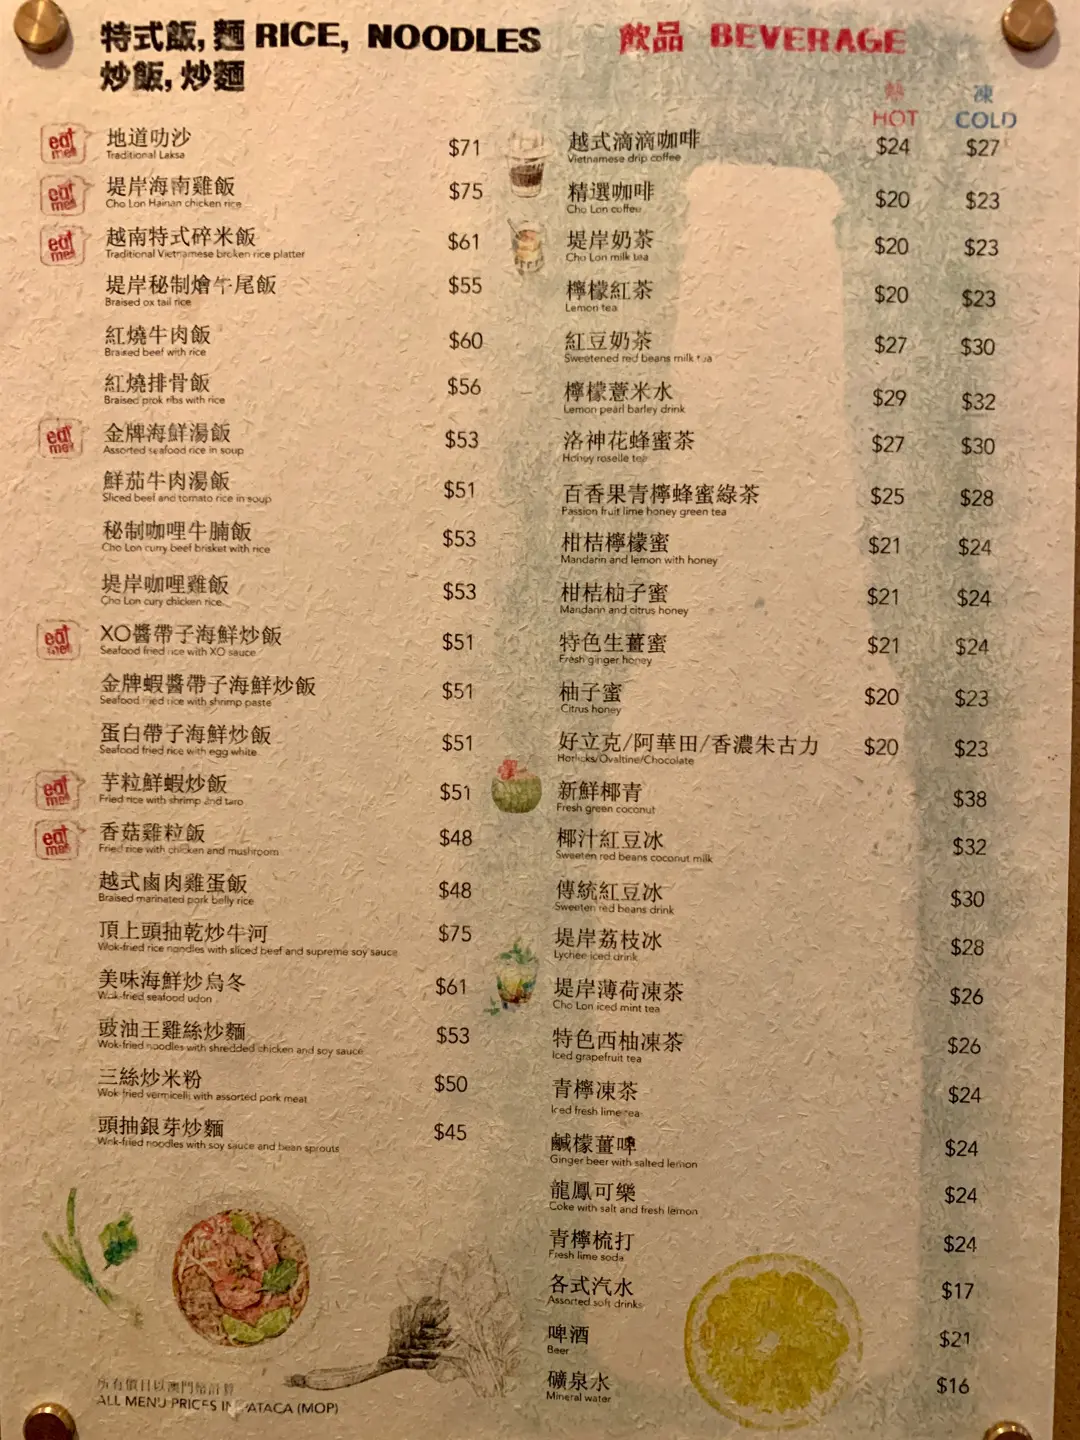 特式飯, 麵 RICE, NOODLES
炒飯, 炒麵
eat me!!
地道叻沙 $71
Traditional Laksa
eat me!!
堤岸海南雞飯 $75
Cho Lon Hainan chicken rice
eat me!!
越南特式碎米飯 $61
Traditional Vietnamese broken rice platter
堤岸秘制燴牛尾飯 $55
Braised ox tail rice
紅燒牛肉飯 $60
Braised beef with rice
紅燒排骨飯 $56
Braised prok ribs with rice
eat me!!
金牌海鮮湯飯 $53
Assorted seafood rice in soup
鮮茄牛肉湯飯 $51
Sliced beef and tomato rice in soup
秘制咖哩牛腩飯 $53
Cho Lon curry beef brisket with rice
堤岸咖哩雞飯 $53
Cho Lon cury chicken rice
eat me!!
XO醬帶子海鮮炒飯 $51
Seafood fried rice with XO sauce
金牌蝦醬帶子海鮮炒飯 $51
Seafood fried rice with shrimp paste
蛋白帶子海鮮炒飯 $51
Seafood fried rice with egg white
eat me!!
芋粒鮮蝦炒飯 $51
Fried rice with shrimp and taro
eat me!!
香菇雞粒飯 $48
Fried rice with chicken and mushroom
越式鹵肉雞蛋飯 $48
Braised marinated pork belly rice
頂上頭抽乾炒牛河 $75
Wok-fried rice noodles with sliced beef and supreme soy sauce
美味海鮮炒烏冬 $61
Wok-fried seafood udon
豉油王雞絲炒麵 $53
Wok-fried noodles with shredded chicken and soy sauce
三絲炒米粉 $50
Wok-fried vermicelli with assorted pork meat
頭抽銀芽炒麵 $45
Wok-fried noodles with soy sauce and bean sprouts
所有價目以澳門幣計算
ALL MENU PRICES IN PATACA (MOP)
飲品 BEVERAGE
熱 凍
HOT COLD
越式滴滴咖啡 $24 $27
Vietnamese drip coffee
精選咖啡 $20 $23
Cho Lon coffee
堤岸奶茶 $20 $23
Cho Lon milk tea
檸檬紅茶 $20 $23
Lemon tea
紅豆奶茶 $27 $30
Sweetened red beans milk tea
檸檬薏米水 $29 $32
Lemon pearl barley drink
洛神花蜂蜜茶 $27 $30
Honey roselle tea
百香果青檸蜂蜜綠茶 $25 $28
Passion fruit lime honey green tea
柑桔檸檬蜜 $21 $24
Mandarin and lemon with honey
柑桔柚子蜜 $21 $24
Mandarin and citrus honey
特色生薑蜜 $21 $24
Fresh ginger honey
柚子蜜 $20 $23
Citrus honey
好立克/阿華田/香濃朱古力 $20 $23
Horlicks/Ovaltine/Chocolate
新鮮椰青 $38
Fresh green coconut
椰汁紅豆冰 $32
Sweeten red beans coconut milk
傳統紅豆冰 $30
Sweeten red beans drink
堤岸荔枝冰 $28
Lychee iced drink
堤岸薄荷凍茶 $26
Cho Lon iced mint tea
特色西柚凍茶 $26
Iced grapefruit tea
青檸凍茶 $24
Iced fresh lime tea
鹹檬薑啤 $24
Ginger beer with salted lemon
龍鳳可樂 $24
Coke with salt and fresh lemon
青檸梳打 $24
Fresh lime soda
各式汽水 $17
Assorted soft drinks
啤酒 $21
Beer
礦泉水 $16
Mineral water